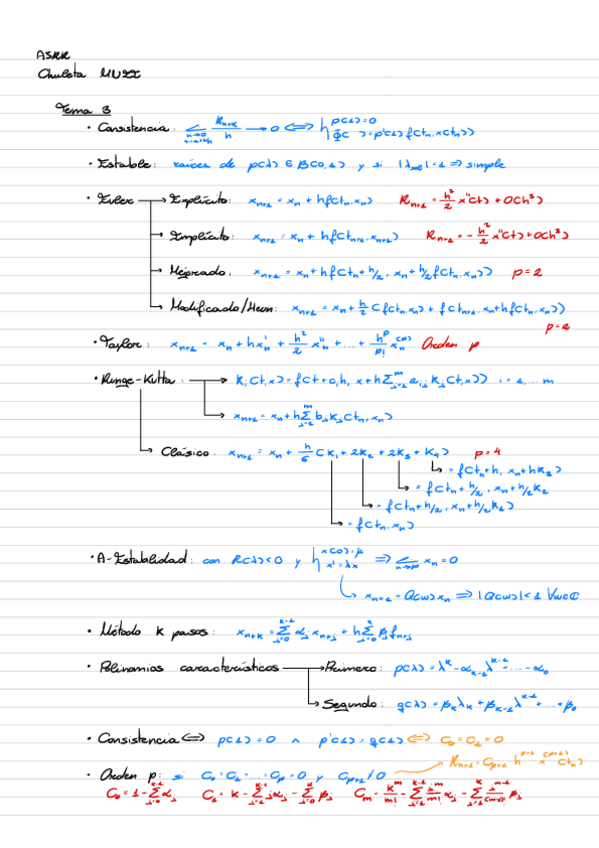 ASRR
Chuleta MNII
Tema 3
• Consistencia: lim R_{n+k}/h → 0 ⟺ { p(1)=0
Φ( )=p'(1) f(t_n, x(t_n))
• Estable: raíces de p(λ) ∈ B(0,1) y si |λ|=1 ⟹ simple
• Euler → Explícito: x_{n+1} = x_n + h f(t_n, x_n) R_{n+1} = h²/2 x''(t) + O(h³)
→ Implícito: x_{n+1} = x_n + h f(t_{n+1}, x_{n+1}) R_{n+1} = - h²/2 x''(t) + O(h³)
→ Mejorado: x_{n+1} = x_n + h f(t_n + h/2, x_n + h/2 f(t_n, x_n)) p=2
→ Modificado/Heun: x_{n+1} = x_n + h/2 (f(t_n, x_n) + f(t_{n+1}, x_n + h f(t_n, x_n)))
p=2
• Taylor: x_{n+1} = x_n + h x'_n + h²/2 x''_n + ... + h^p/p! x_n^{(p)} Orden p
• Runge-Kutta: → K_i(t,x) = f(t + c_i h, x + h Σ_{j=1}^m a_{ij} K_j(t,x)) i=1,...,m
→ x_{n+1} = x_n + h Σ_{j=1}^m b_j K_j(t_n, x_n)
→ Clásico: x_{n+1} = x_n + h/6 (K_1 + 2K_2 + 2K_3 + K_4) p=4
→ = f(t_n + h, x_n + h K_3)
→ = f(t_n + h/2, x_n + h/2 K_2
→ = f(t_n + h/2, x_n + h/2 K_1)
→ = f(t_n, x_n)
• A-Estabilidad: con R(λ)<0 y { x(0)=μ
x'=λx ⟹ lim_{n→∞} x_n = 0
→ x_{n+1} = Q(w) x_n ⟹ |Q(w)| < 1 ∀w∈ℂ
• Método K pasos: x_{n+k} = Σ_{j=0}^{k-1} α_j x_{n+j} + h Σ_{j=0}^k β_j f_{n+j}
• Polinomios característicos → Primero: p(λ) = λ^k - α_{k-1} λ^{k-1} - ... - α_0
→ Segundo: q(λ) = β_k λ^k + β_{k-1} λ^{k-1} + ... + β_0
• Consistencia ⟺ p(1)=0 ∧ p'(1)=q(1) ⟺ C_0 = C_1 = 0
• Orden p: si C_0 = C_1 = ... = C_p = 0 y C_{p+1} ≠ 0 → R_{n+k} = C_{p+1} h^{p+1} x^{(p+1)}(t_n)
C_0 = 1 - Σ_{j=0}^{k-1} α_j C_1 = k - Σ_{j=1}^{k-1} j α_j - Σ_{j=0}^k β_j C_m = k^m/m! - Σ_{j=1}^{k-1} j^m/m! α_j - Σ_{j=1}^k j^{m-1}/(m-1)! β_j